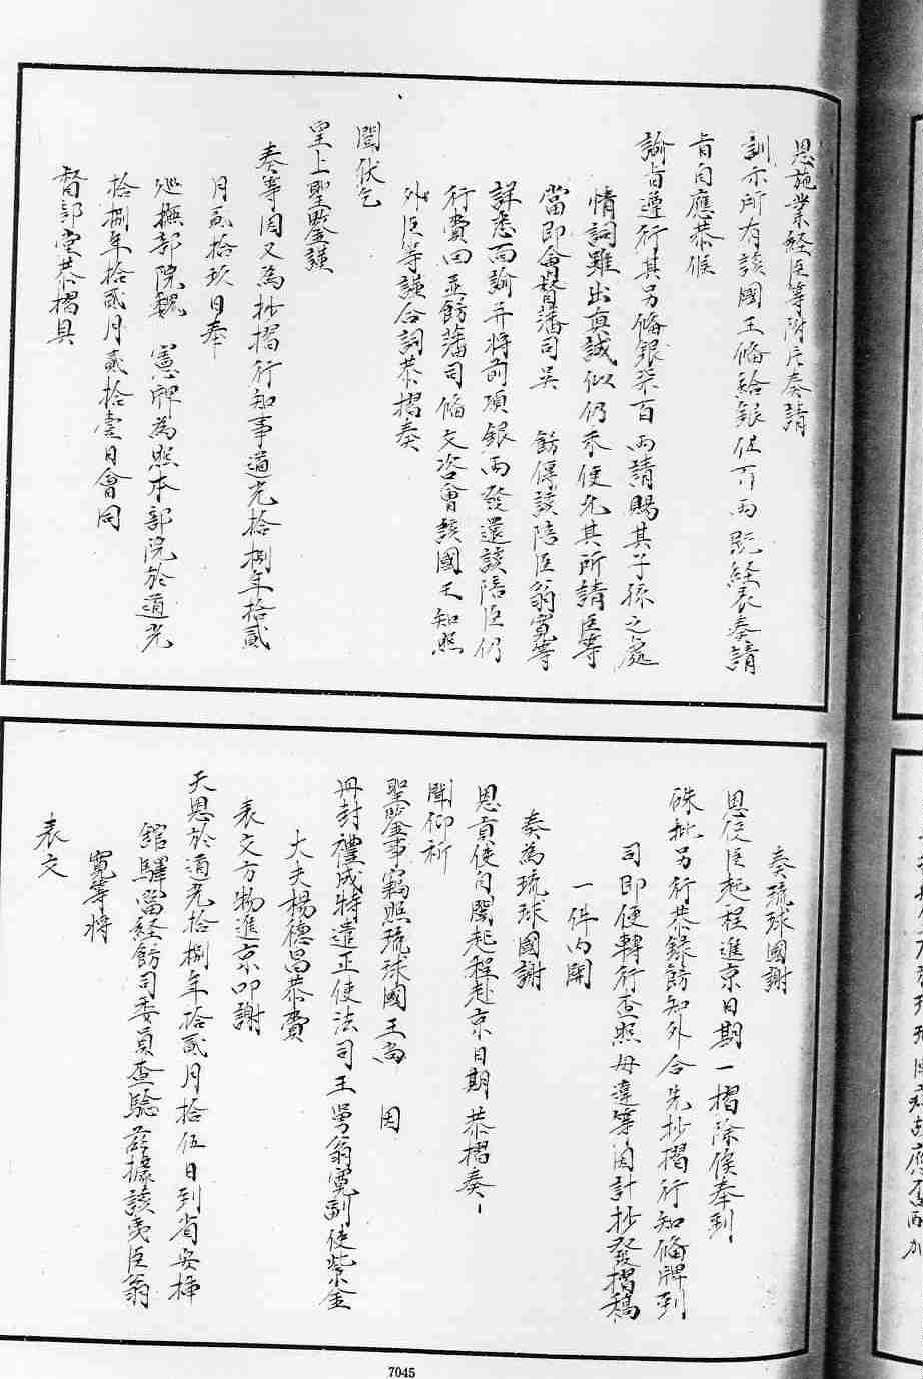 恩施業経臣等附片奏請
訓示所有該國王俻給銀伍百両既経表奏請
旨自應恭候
諭旨遵行其另俻銀柒百両請賜其子孫之處
情詞雖出真誠似仍未便允其所請臣等
當即會督藩司吳　飭傳該陪臣翁寛等
詳悉面諭并将前項銀両發還該陪臣仍
行費囬並飭藩司俻文咨會該國王知照
外臣等謹合詞恭摺奏
聞伏乞
皇上聖鑒謹
奏等因又為抄摺行知事道光拾捌年拾貳
月貳拾玖日奉
廵撫部院魏　憲牌為照本部院於道光
拾捌年拾貳月貳拾壹日會同
督部堂恭摺具
奏琉球國謝
恩使臣起程進京日期一摺除俟奉到
硃批另行恭錄飭知外合先抄摺行知俻牌到
司即便轉行查照毋違等因計抄發摺稿
一件内開
奏為琉球國謝
恩貢使自閩起程赴京日期恭摺奏
聞仰祈
聖鑒事竊照琉球國王尚　因
冊封禮成特遣正使法司王舅翁寛副使紫金
大夫楊德昌恭賫
表文方物進京叩謝
天恩於道光拾捌年拾貳月拾伍日到省安揷
舘驛當経飭司委員查驗茲據該夷臣翁
寛等将
表文
7045